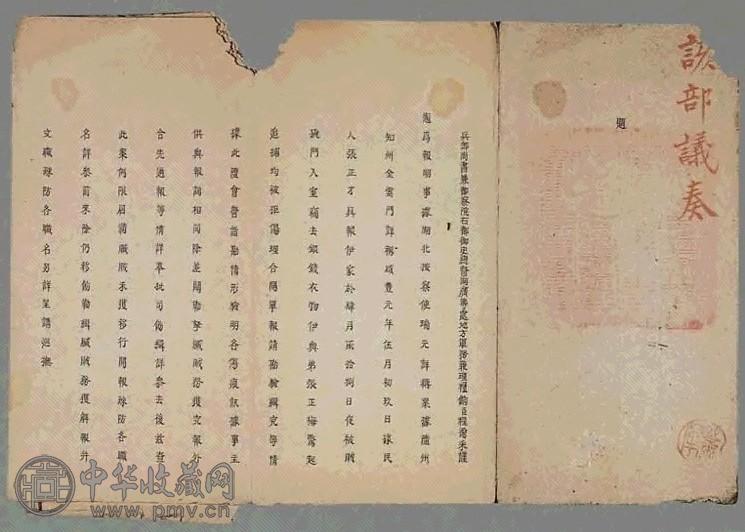 該部議奏
題
兵部尚書兼都察院右都御史總督湖廣等處地方軍務兼理糧餉臣程矞采謹
題為報明事據湖北按察使瑞元詳稱案據隨州
知州金雲門詳稱咸豐元年伍月初玖日據民
人張正才具報伊家於肆月貳拾捌日夜被賊
門入室竊去銀錢衣物伊與弟張正梅驚起
追捕均被拒傷理合開單報請勘驗緝究等情
據此隨會營詣勘情形驗明各傷痕訊據事主
供與報詞相同除差關勒拏贓賊務獲究報外
合先通報等情詳奉批司飭緝詳參去後茲查
此案例限屆滿贓賊未獲移行開報疎防各職
名詳參前來除仍移飭勒緝贓賊務獲解報外
文職疎防各職名另詳呈請巡撫
中华收藏网
www.pmv.cn